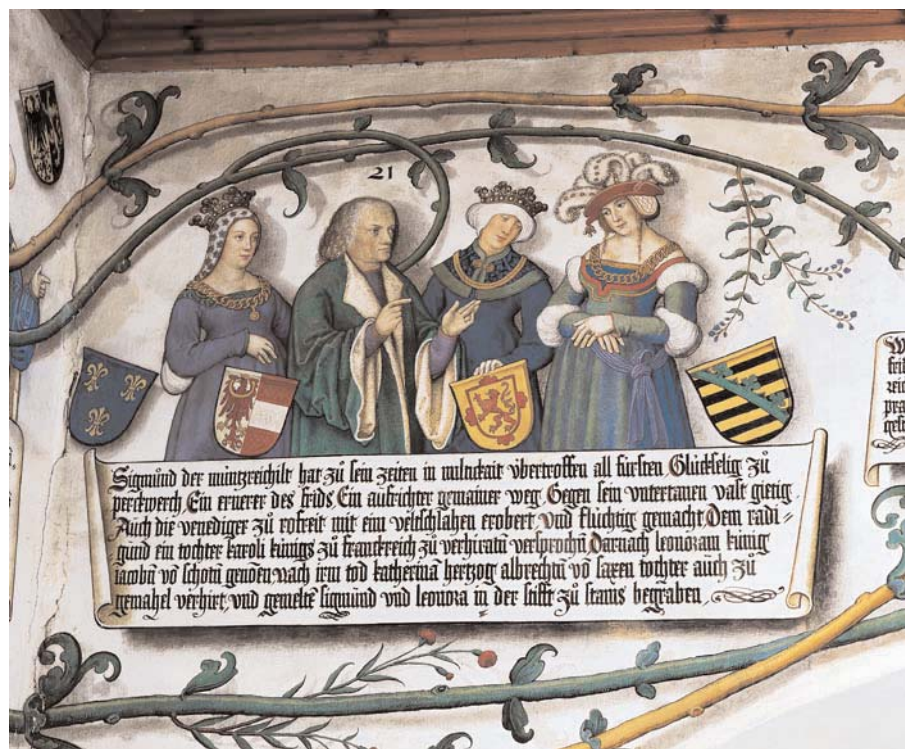 21
Sigmund der müntzreichist hat zů sein zeiten in miltikait vbertroffen all fürsten Glückselig zů
perckwerch Ein ernerer des frids Ein aufrichter gemainer weg Gegen sein vntertanen vast gietig
Auch die venediger zů rofreit mit eim veltschlahen erobert vnd flüchtig gemacht Dem radi=
gund ein tochter karoli künigs zů franckreich zů verhiratñ versprochñ Darnach leonoram künig
iacobñ võ schotñ genõen nach irm tod katherinã hertzog albrechtñ võ saxen tochter auch zů
gemahel verhirt vnd gemelte sigmund vnd leonora in der stifft zů stams begraben